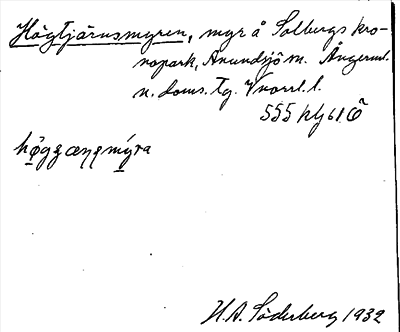 Högtjärnsmyren, myr å Solbergs kro-
nopark, Anundsjö sn. Ångerml.
n. doms. Tg. Vnorrl. l.
555 Hlj 61 Ö
höggæŋŋmýra
H.A. Söderberg 1932